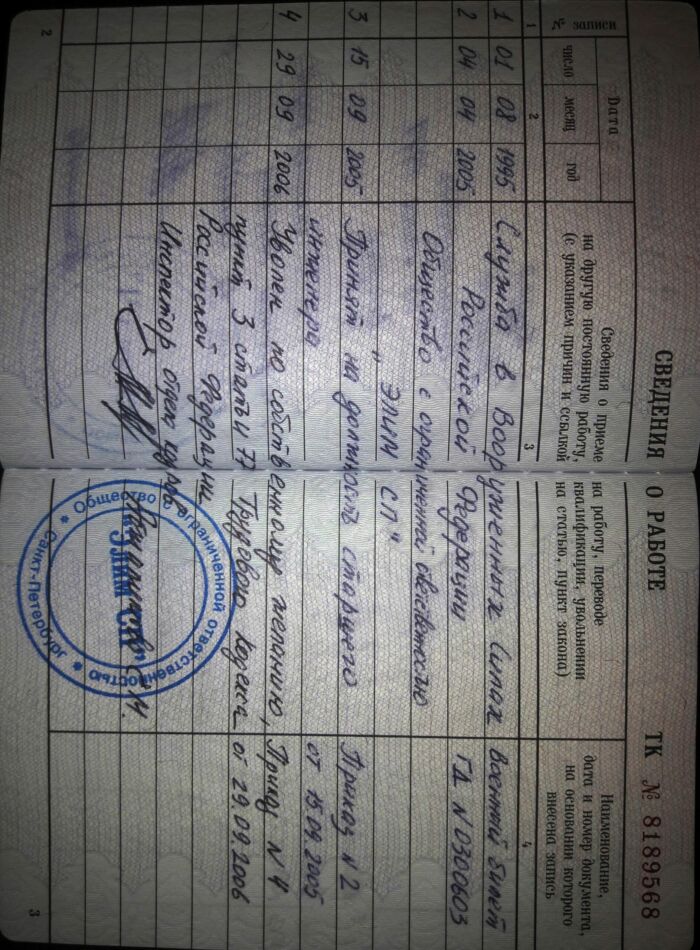 СВЕДЕНИЯ О РАБОТЕ
ТК № 8189568
№ записи
Дата
число
месяц
год
Сведения о приеме на работу, переводе
на другую постоянную работу, квалификации, увольнении
(с указанием причин и ссылкой на статью, пункт закона)
Наименование,
дата и номер документа,
на основании которого
внесена запись
1 2 3 4
1 01 08 1995 Служба в Вооруженных Силах Военный билет
2 04 04 2005 Российской Федерации ГД № 0300603
Общество с ограниченной ответственностью
"ЭЛИМ СП"
3 15 09 2005 Принят на должность старшего Приказ № 2
инженера от 15.09.2005
4 29 09 2006 Уволен по собственному желанию, Приказ № 4
пункт 3 статьи 77 Трудового кодекса от 29.09.2006
Российской Федерации.
Инспектор отдела кадров
Общество с ограниченной ответственностью
"ЭЛИМ СП"
Санкт-Петербург
2
3